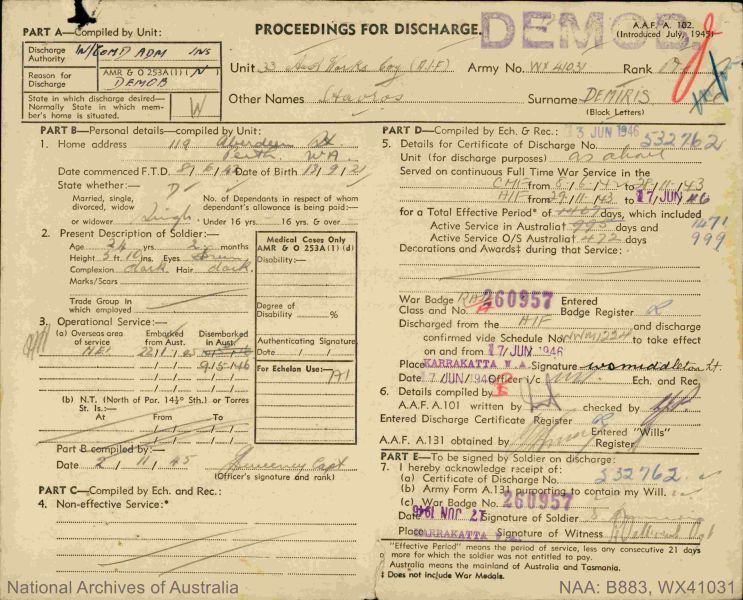 PART A—Compiled by Unit:
PROCEEDINGS FOR DISCHARGE.
DEMOB.
A.A.F. A. 102.
(Introduced July, 1945)
Discharge Authority
ADM INS
Reason for Discharge
AMR & O 253A(1)(N)
DEMOB
State in which discharge desired—Normally State in which member's home is situated.
W
Unit 33 Works Coy (A.I.F)
Army No. WX 41031
Rank
Other Names Stavros
Surname DEMIRIS
(Block Letters)
PART B—Personal details—compiled by Unit:
1. Home address 119 Aberdeen St
Perth WA
Date commenced F.T.D. 8/6/42 Date of Birth 13/9/21
State whether:—
Married, single, divorced, widow or widower Single
No. of Dependants in respect of whom dependant's allowance is being paid:—
Under 16 yrs. 16 yrs. & over
2. Present Description of Soldier:—
Age 24 yrs. 2 months
Height 5 ft. 10 ins. Eyes Brown
Complexion dark Hair dark
Marks/Scars
Trade Group in which employed
Medical Cases Only
AMR & O 253A(1)(d)
Disability:—
Degree of Disability %
Authenticating Signature
Date / /
For Echelon Use:—
A1
3. Operational Service:—
(a) Overseas area of service
Embarked from Aust.
Disembarked in Aust.
NEI 22/1/45
9/5/46
(b) N.T. (North of Par. 14½° Sth.) or Torres St. Is.:—
At From To
Part B compiled by:
Date 2/11/45
Capt
(Officer's signature and rank)
PART C—Compiled by Ech. and Rec.:
4. Non-effective Service:*
PART D—Compiled by Ech. & Rec.: 3 JUN 1946
5. Details for Certificate of Discharge No. 532762
Unit (for discharge purposes) as above
Served on continuous Full Time War Service in the
CMF from 8/6/42 to 28/11/43
AIF from 29/11/43 to 17 JUN 46
for a Total Effective Period* of days, which included 1471
Active Service in Australia‡ 995 days and 999
Active Service O/S Australia‡ 472 days
Decorations and Awards‡ during that Service:—
War Badge RAS 260957 Entered
Class and No. A Badge Register
Discharged from the AIF and discharge
confirmed vide Schedule No. to take effect
on and from 17 JUN 1946
Place KARRAKATTA W.A. Signature W S Middleton Lt.
Date 17 JUN 1946 Officer i/c Ech. and Rec.
6. Details compiled by
A.A.F. A.101 written by checked by
Entered Discharge Certificate Register
Entered "Wills" Register
A.A.F. A.131 obtained by
PART E—To be signed by Soldier on discharge:
7. I hereby acknowledge receipt of:
(a) Certificate of Discharge No. 532762
(b) Army Form A.131 purporting to contain my Will.
(c) War Badge No. 260957
Date 1946 JUN 17 Signature of Soldier
Place KARRAKATTA W.A. Signature of Witness
"Effective Period" means the period of service, less any consecutive 21 days or more for which the soldier was not entitled to pay.
Australia means the mainland of Australia and Tasmania.
‡ Does not include War Medals.
National Archives of Australia
NAA: B883, WX41031